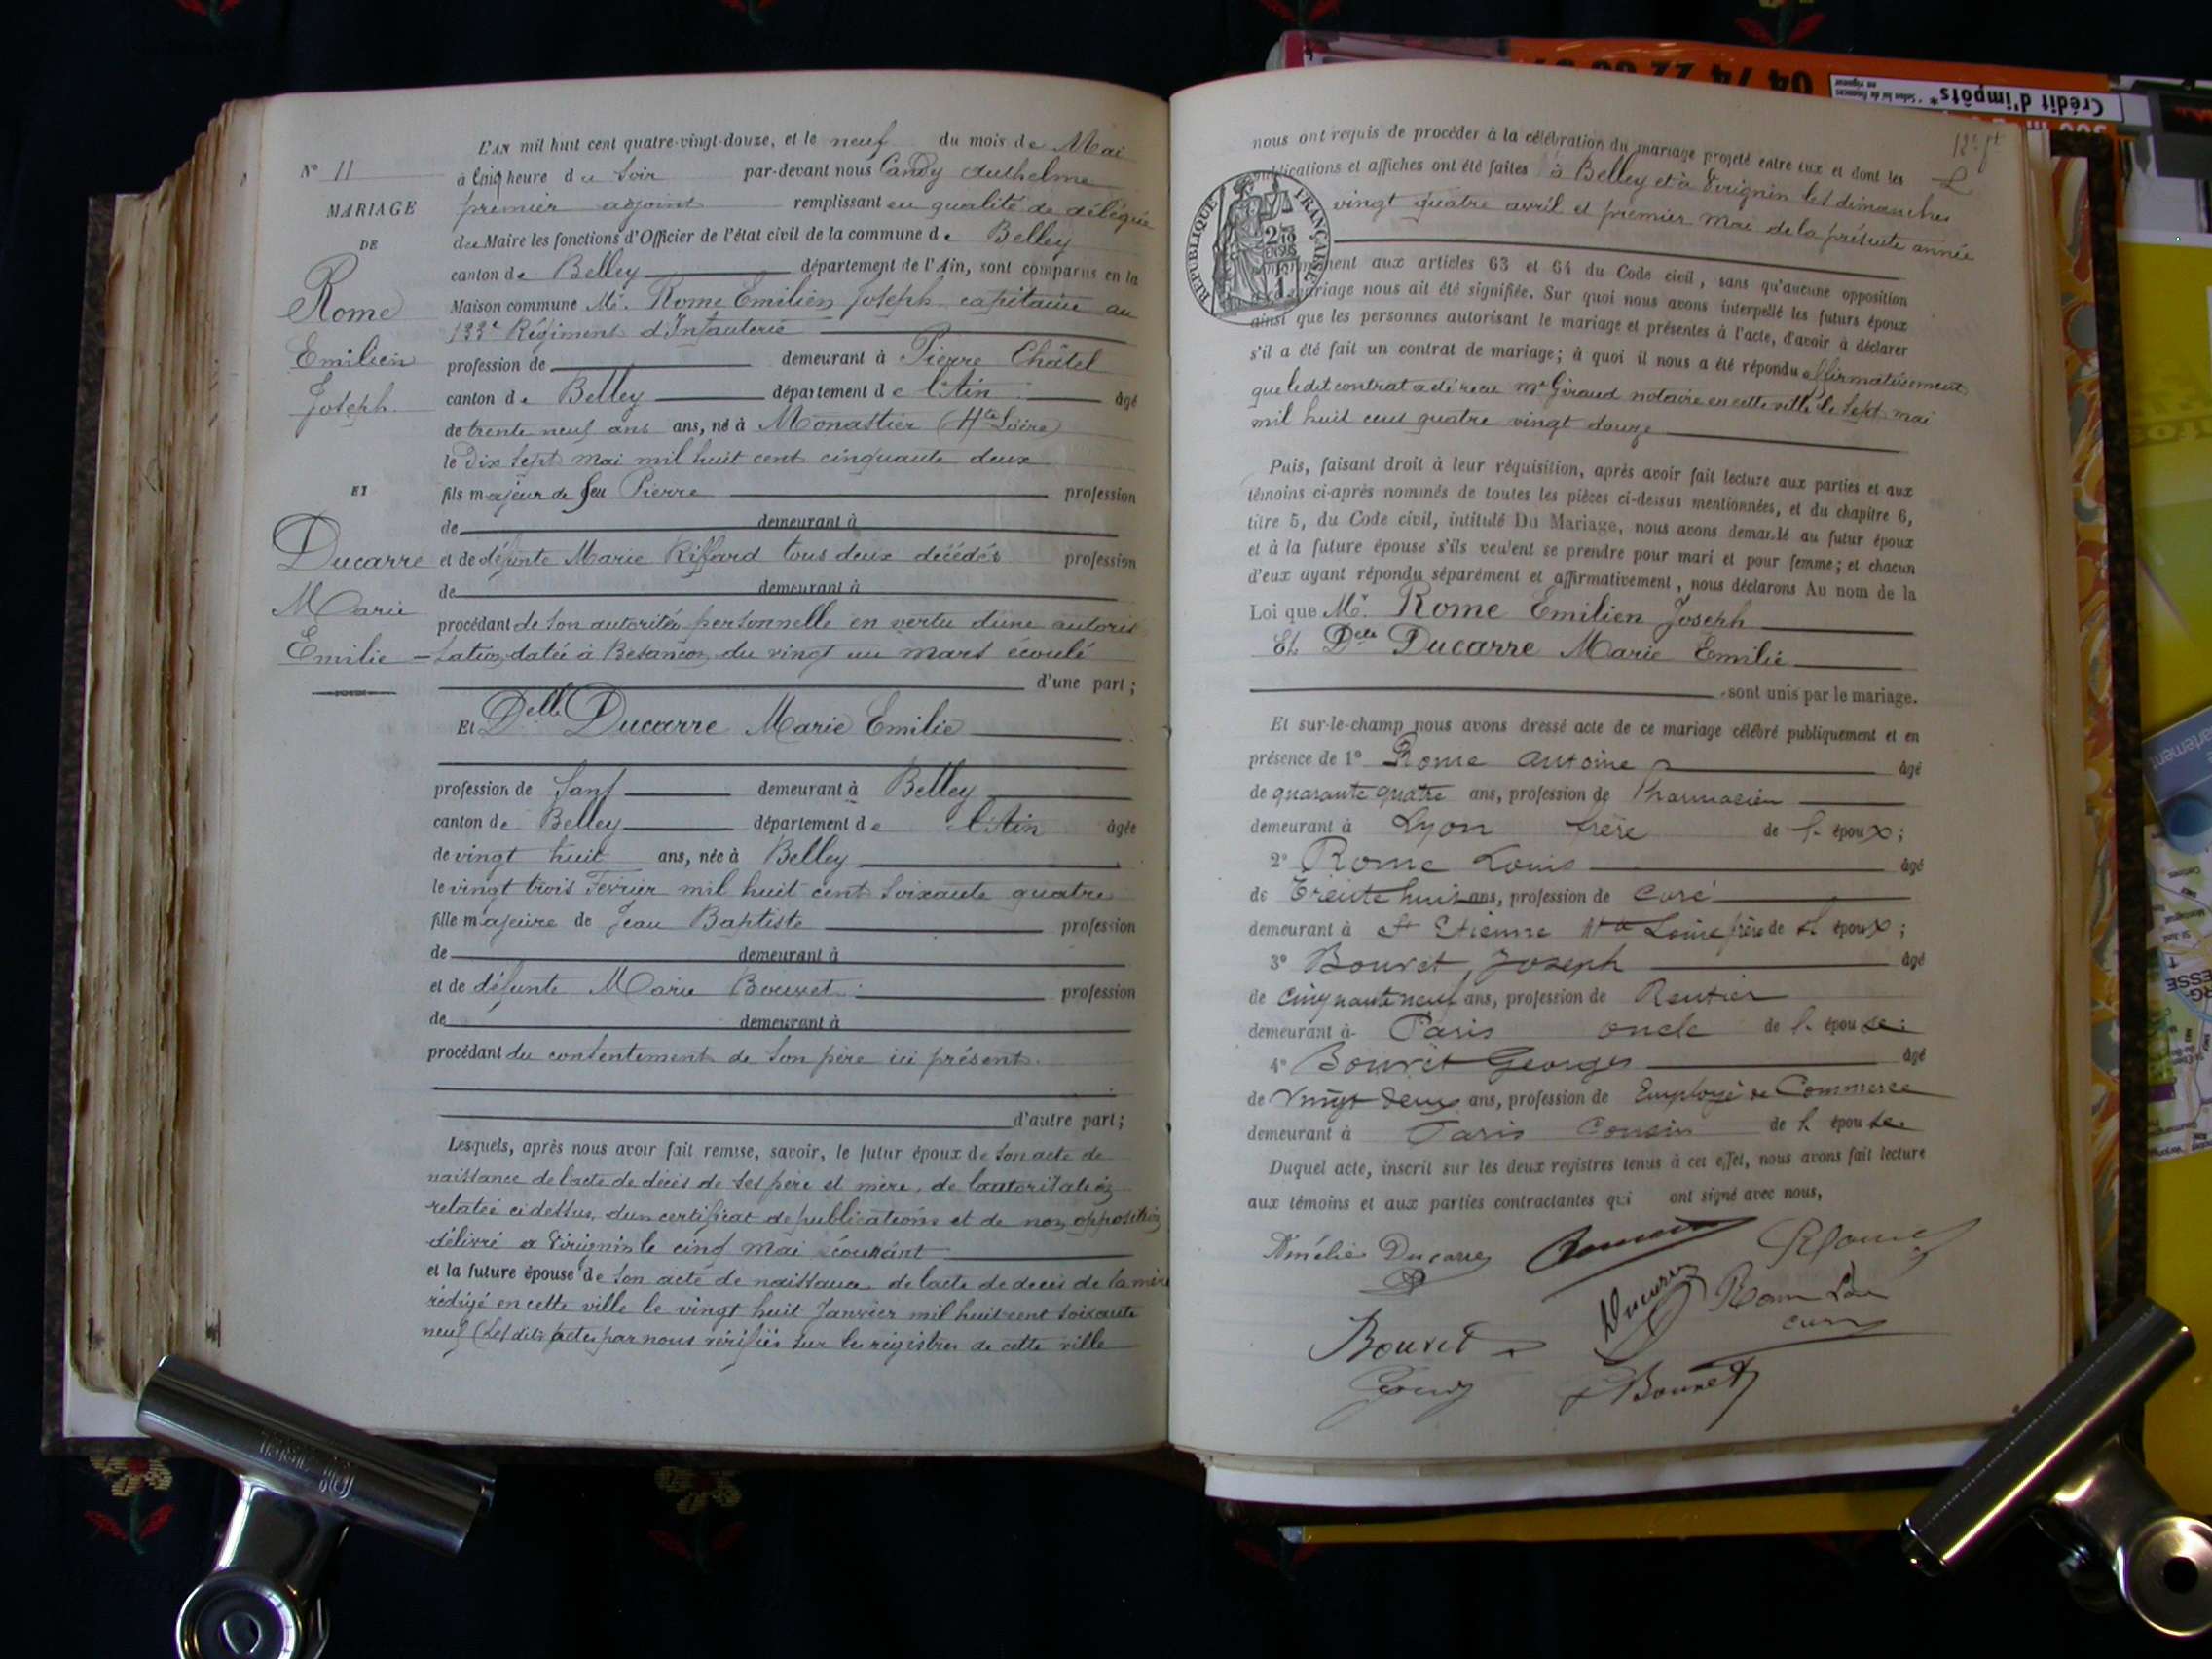 L'AN mil huit cent quatre-vingt-douze, et le neuf du mois de Mai
N° 11
à Cinq heure du Soir par-devant nous Candy Anthelme
MARIAGE
premier adjoint remplissant en qualité de délégué
DE
du Maire les fonctions d'Officier de l'état civil de la commune de Belley
canton de Belley département de l'Ain, sont comparus en la
Rome
Maison commune Mr. Rome Emilien Joseph capitaine au
133e Régiment d'Infanterie
Emilien
profession de demeurant à Pierre Châtel
Joseph.
canton de Belley département de l'Ain âgé
de trente neuf ans ans, né à Monastier (Hte Loire)
le Dix Sept mai mil huit cent cinquante deux
ET
fils majeur de feu Pierre profession
de demeurant à
Ducarre
et de défunte Marie Riffard tous deux décédés profession
de demeurant à
Marie
procédant de son autorité personnelle en vertu d'une autoris
Emilie
-sation datée à Besançon du vingt un mars écoulé
d'une part;
Et Delle Ducarre Marie Emilie
profession de Sans demeurant à Belley
canton de Belley département de l'Ain âgée
de vingt huit ans, née à Belley
le vingt trois Février mil huit cent soixante quatre
fille majeure de Jean Baptiste profession
de demeurant à
et de défunte Marie Bouvet profession
de demeurant à
procédant du consentement de son père ici présent.
d'autre part;
Lesquels, après nous avoir fait remise, savoir, le futur époux de son acte de
naissance de l'acte de décès de ses père et mère, de l'autorisation
relatée ci dessus, d'un certificat de publications et de non opposition
délivré à Virignin le cinq mai courant
et la future épouse de son acte de naissance de l'acte de décès de sa mère
rédigé en cette ville le vingt huit Janvier mil huit cent soixante
neuf (Les dits actes par nous vérifiés sur les registres de cette ville
nous ont requis de procéder à la célébration du mariage projeté entre eux et dont les
publications et affiches ont été faites à Belley et à Virignin les dimanches
vingt quatre avril et premier mai de la présente année
RÉPUBLIQUE FRANÇAISE
aux articles 63 et 64 du Code civil, sans qu'aucune opposition
mariage nous ait été signifiée. Sur quoi nous avons interpellé les futurs époux
ainsi que les personnes autorisant le mariage et présentes à l'acte, d'avoir à déclarer
s'il a été fait un contrat de mariage; à quoi il nous a été répondu affirmativement
que le dit contrat a été recu Me Giraud notaire en cette ville le sept mai
mil huit cent quatre vingt douze
Puis, faisant droit à leur réquisition, après avoir fait lecture aux parties et aux
témoins ci-après nommés de toutes les pièces ci-dessus mentionnées, et du chapitre 6,
titre 5, du Code civil, intitulé Du Mariage, nous avons demandé au futur époux
et à la future épouse s'ils veulent se prendre pour mari et pour femme; et chacun
d'eux ayant répondu séparément et affirmativement, nous déclarons Au nom de la
Loi que Mr. Rome Emilien Joseph
Et Delle Ducarre Marie Emilie
sont unis par le mariage.
Et sur-le-champ nous avons dressé acte de ce mariage célébré publiquement et en
présence de 1° Rome Antoine âgé
de quarante quatre ans, profession de Pharmacien
demeurant à Lyon frère de l' époux;
2° Rome Louis âgé
de Trente huit ans, profession de curé
demeurant à St Etienne Hte Loire frère de l' époux;
3° Bouvet Joseph âgé
de cinquante neuf ans, profession de Rentier
demeurant à Paris oncle de l' épouse;
4° Bouvet Georges âgé
de Vingt deux ans, profession de Employé de Commerce
demeurant à Paris Cousin de l' épouse
Duquel acte, inscrit sur les deux registres tenus à cet effet, nous avons fait lecture
aux témoins et aux parties contractantes qui ont signé avec nous,
Amélie Ducarre Rome
Ducarre Rome
curé
Bouvet
Bouvet
04 74 22
Crédit d'impôts*